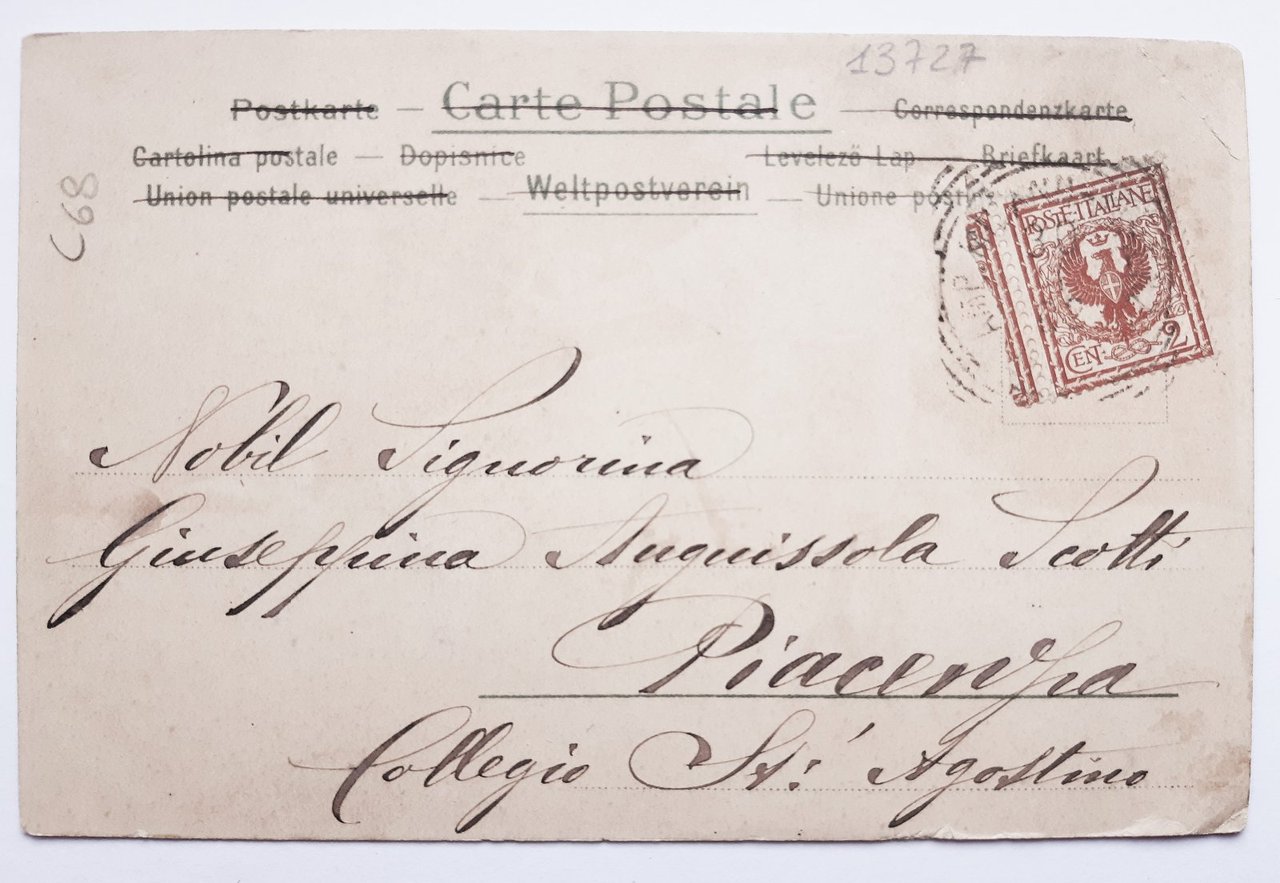 13727
Postkarte — Carte Postale — Correspondenzkarte
Cartolina postale — Dopisnice — Levelező Lap — Briefkaart
Union postale universelle — Weltpostverein — Unione postale
C68
POSTE·ITALIANE
CEN. 2
Nobil Signorina
Giuseppina Anguissola Scotti
Piacenza
Collegio St: Agostino